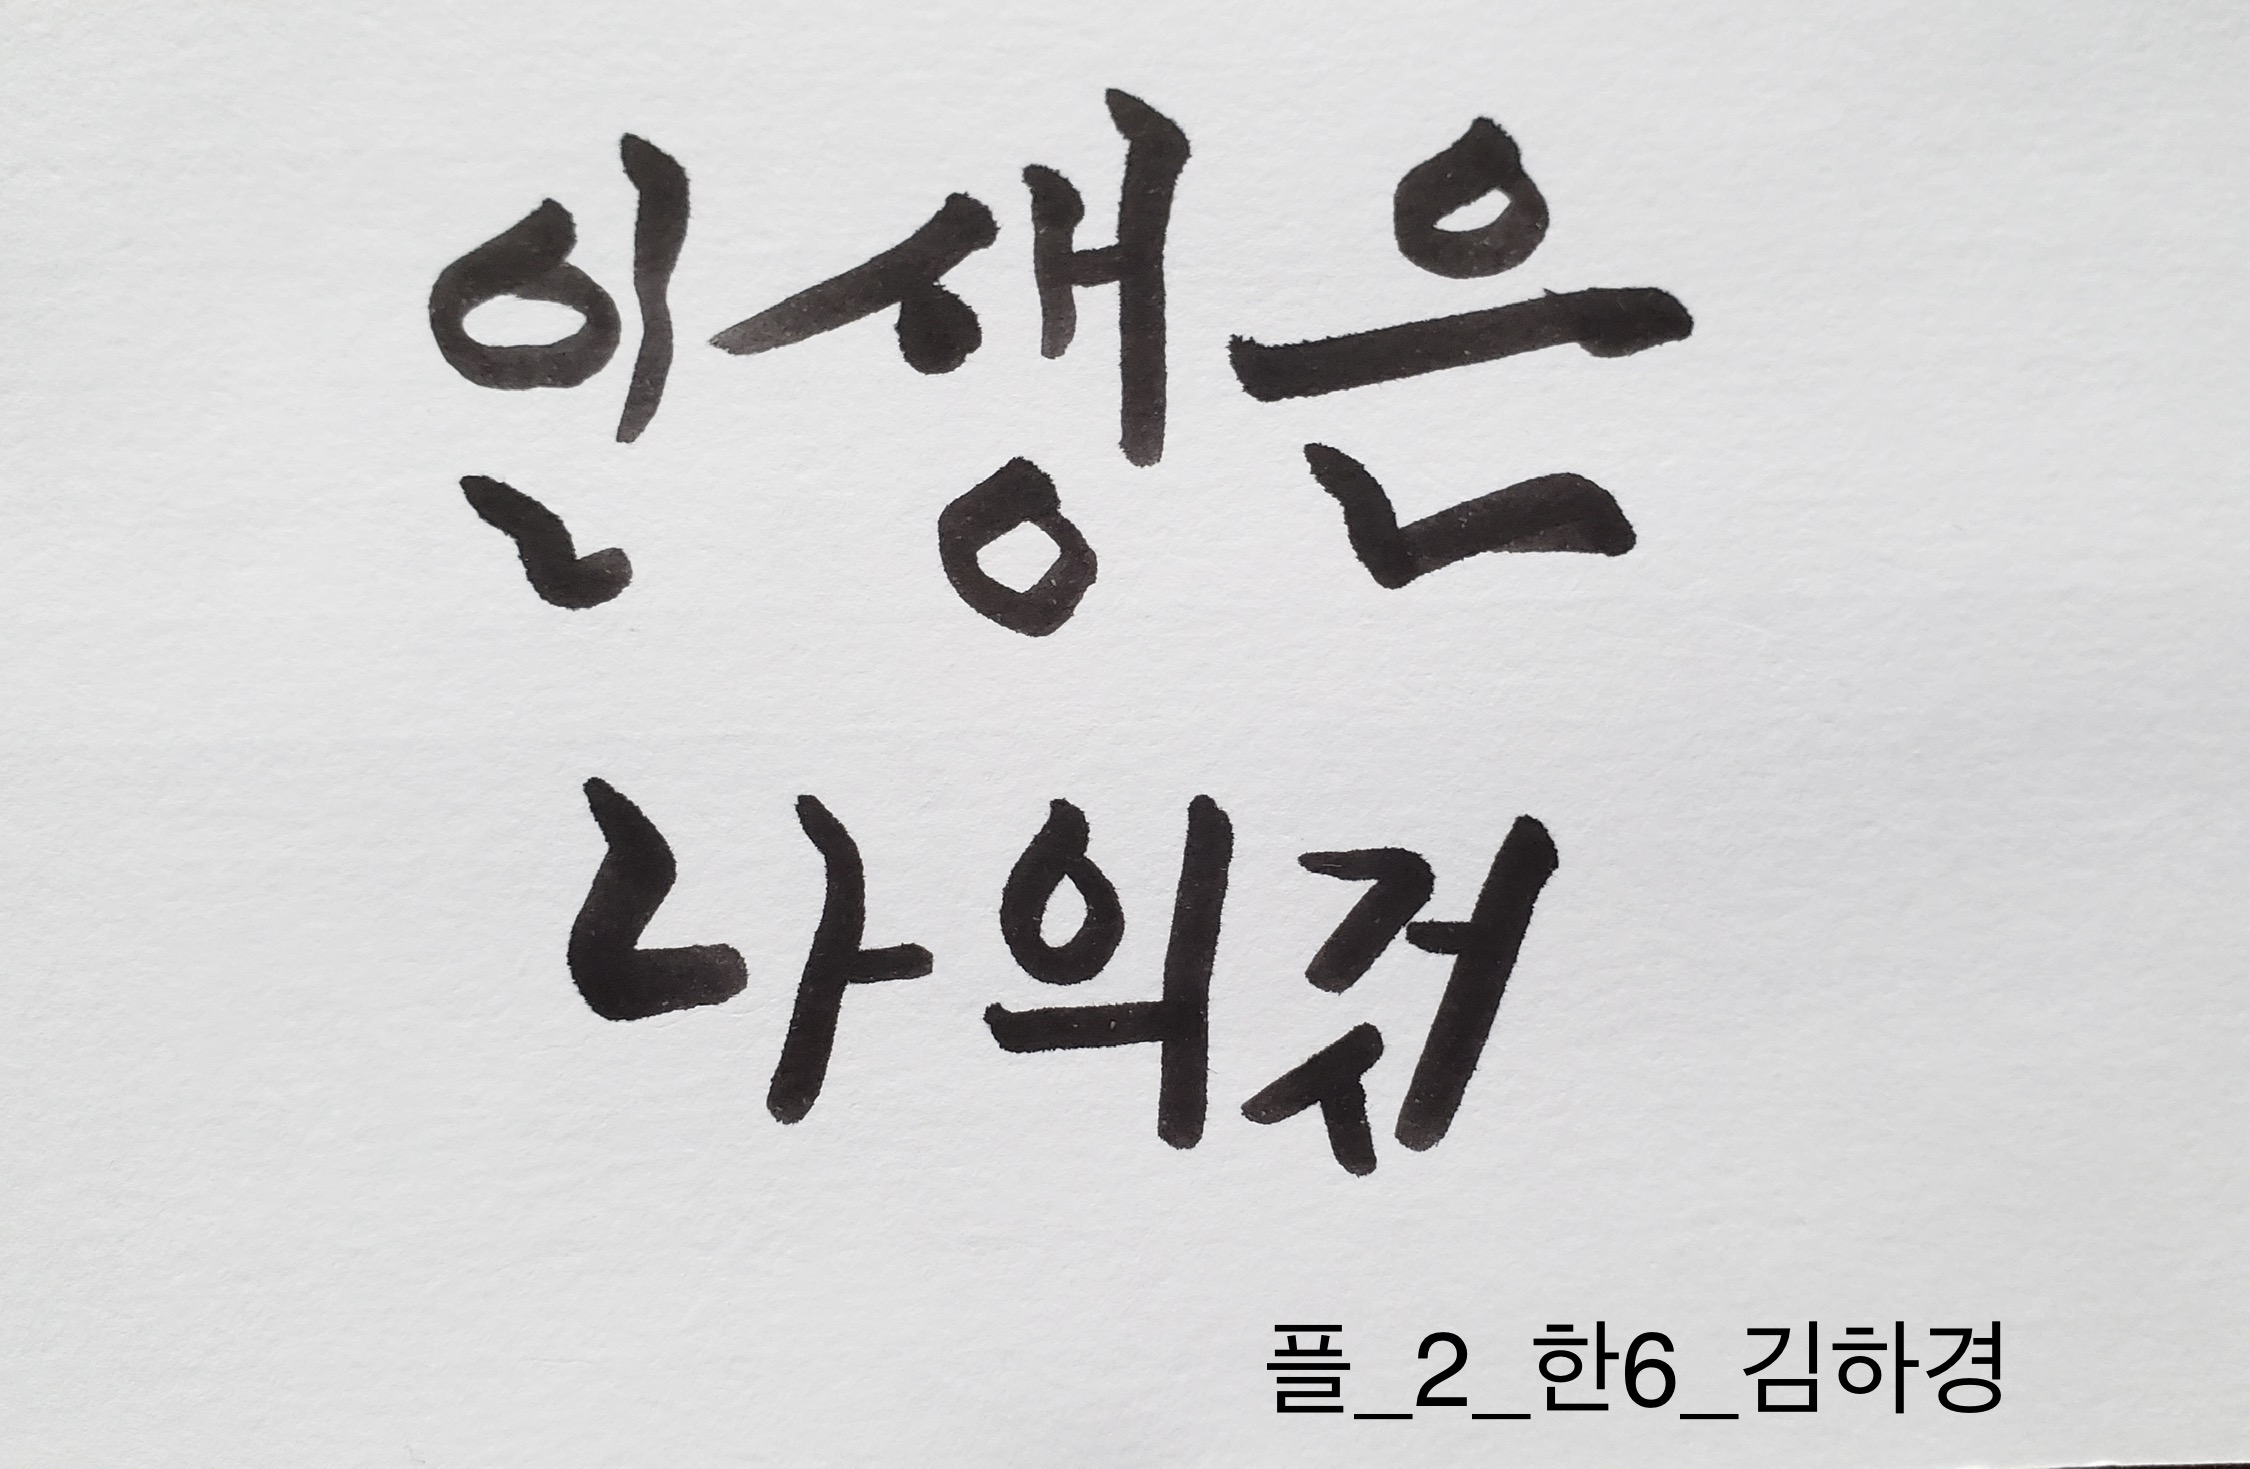 인생은
나의것
플_2_한6_김하경